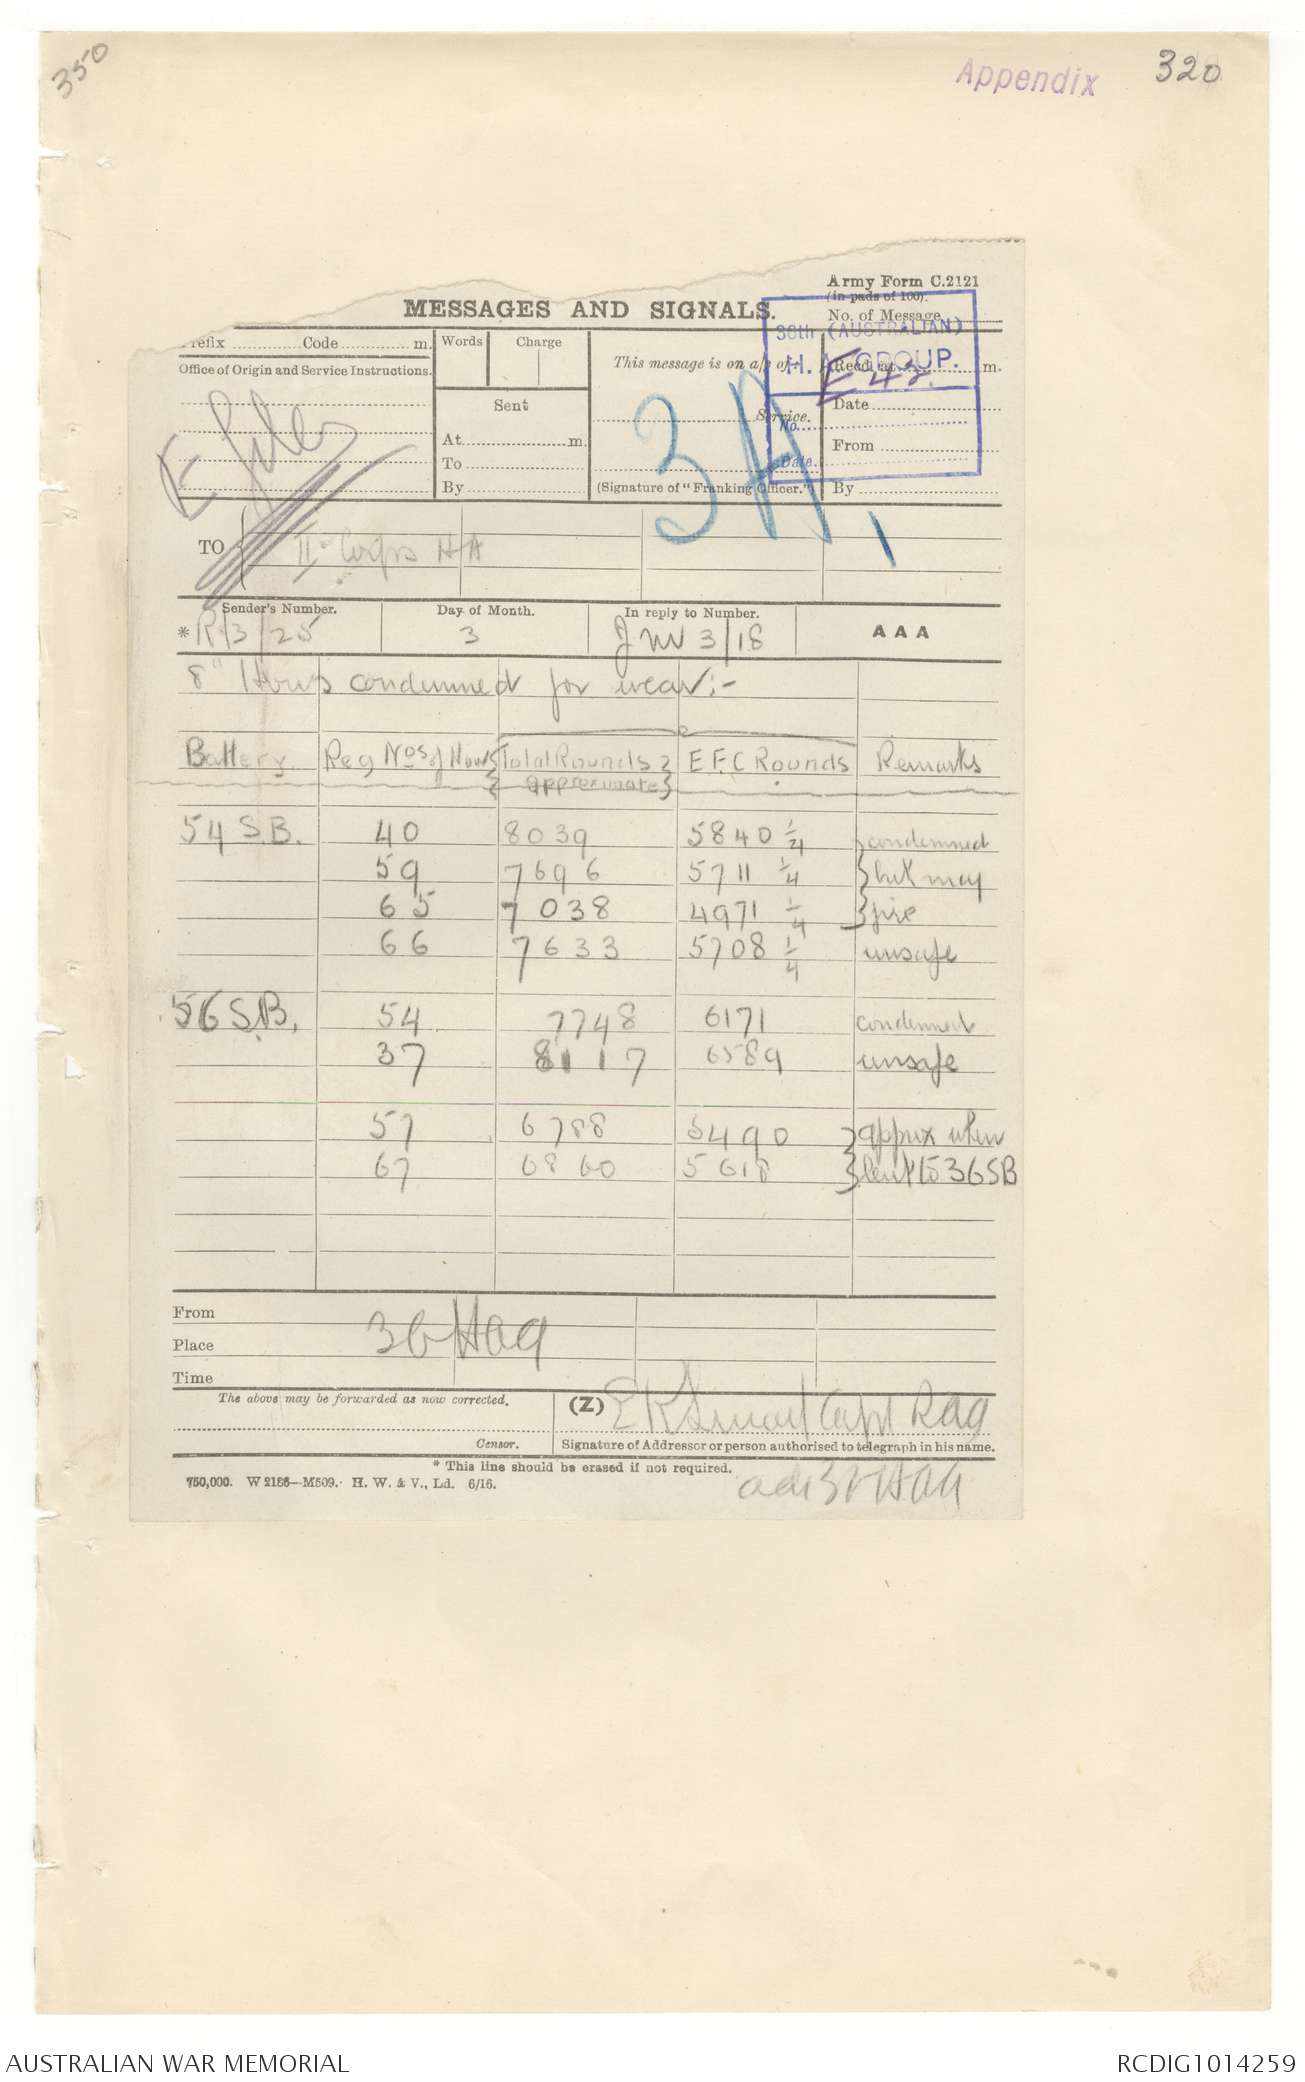 350
Appendix 320
Army Form C.2121
(in pads of 100).
MESSAGES AND SIGNALS.
No. of Message
Prefix Code m.
Words Charge
This message is on a/c of:
Recd. at m.
Office of Origin and Service Instructions.
Sent
Service.
Date
At m.
From
To
By
(Signature of "Franking Officer.")
By
36th (AUSTRALIAN)
H. A. GROUP.
E 42.
No.
Date.
E files
3A,
TO II Corps HA
Sender's Number. Day of Month. In reply to Number. AAA
* R/3/25 3 3/18
8" Hows condemned for wear:-
Battery Reg Nos of Hows Total Rounds approximate E.F.C Rounds Remarks
54 S.B. 40 8039 5840 1/4 condemned
59 7696 5711 1/4 but may
65 7038 4971 1/4 fire
66 7633 5708 1/4 unsafe
56 S.B. 54 7748 6171 condemned
37 8117 6589 unsafe
57 6788 5490 approx when
67 6860 5618 lent to 36SB
From
Place 36 HAG
Time
The above may be forwarded as now corrected.
(Z) Capt RAG
Censor.
Signature of Addressor or person authorised to telegraph in his name.
* This line should be erased if not required.
750,000. W 2186—M509. H. W. & V., Ld. 6/16.
HAG
AUSTRALIAN WAR MEMORIAL RCDIG1014259